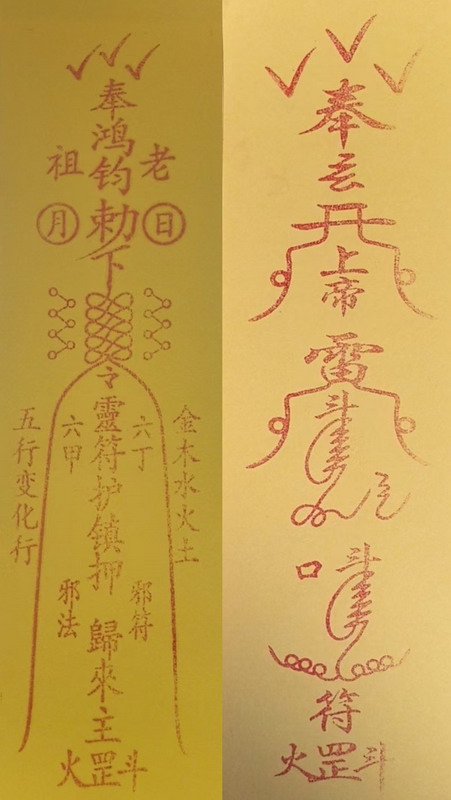 奉鴻鈞勅下
老祖
日月
令靈符护镇押歸來主
六丁六甲
金木水火土
五行变化行
邪符
邪法
火罡斗
奉玄
上帝
雷
斗
口
斗
符
火罡斗